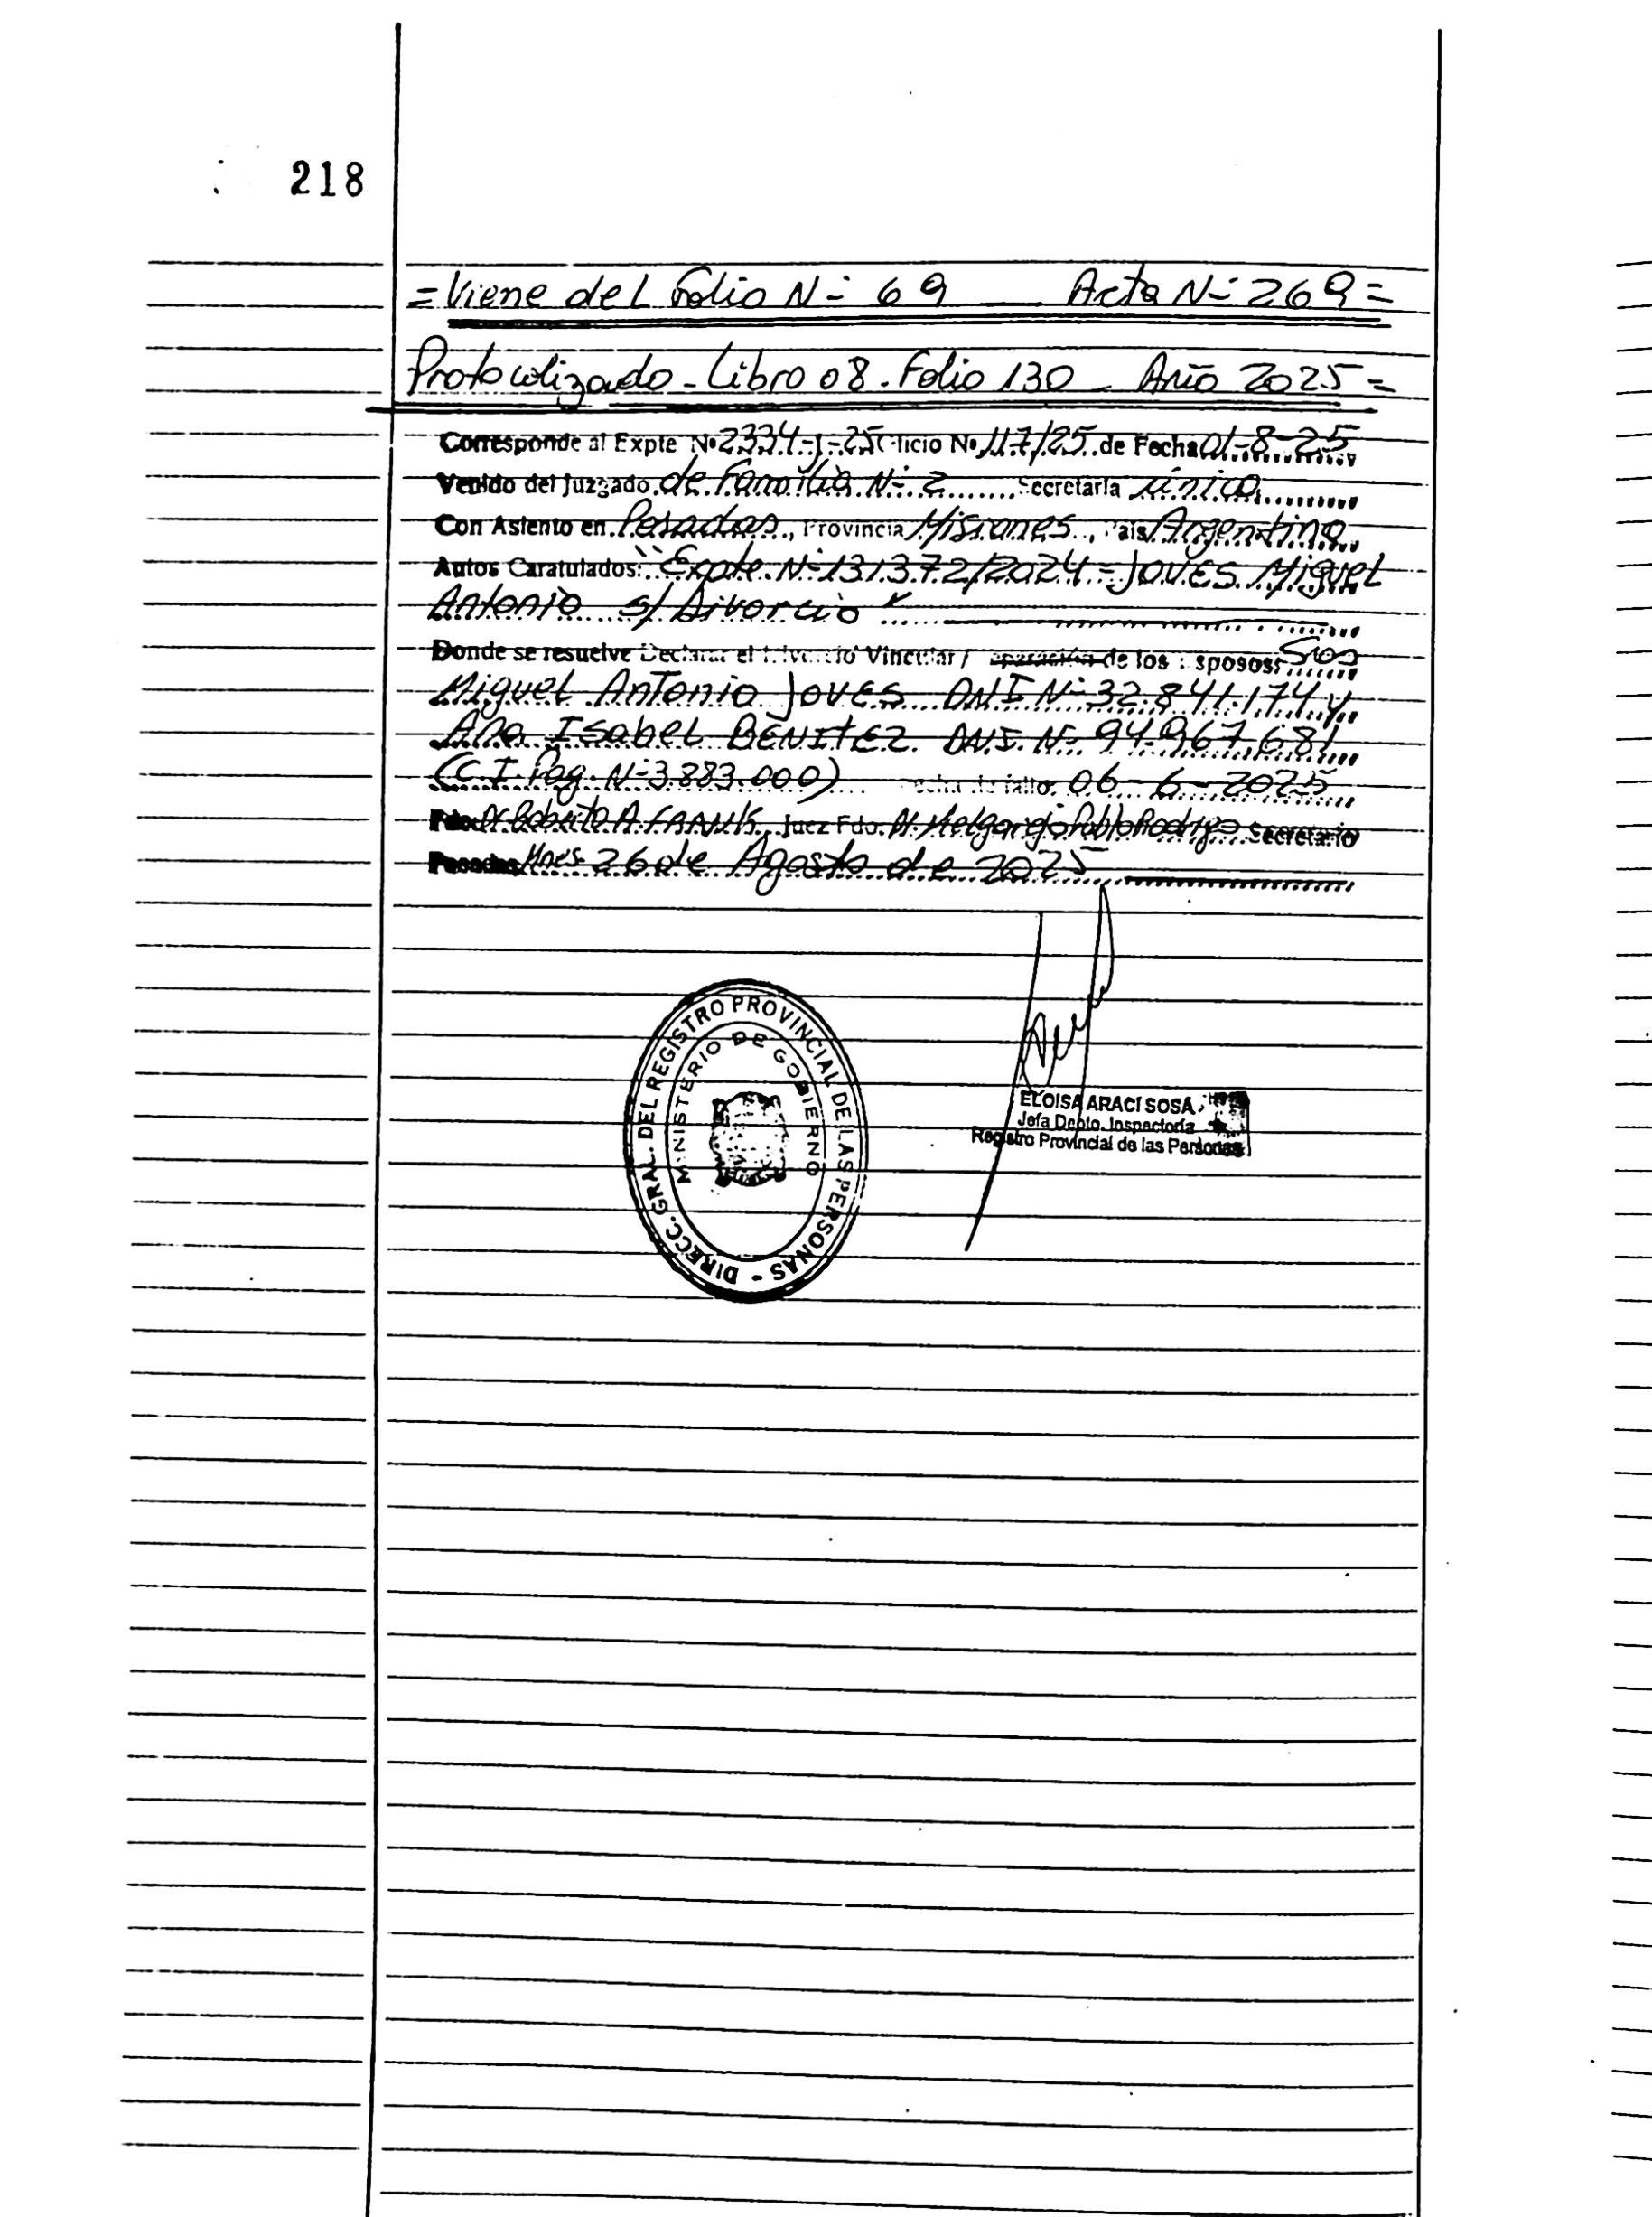 218
= Viene del Folio N- 69 — Acta N- 269 =
Protocolizado - Libro 08 - Folio 130 - Año 2025 =
Corresponde al Expte Nº 2334-J-25 Oficio Nº 117/25 de Fecha 01-8-25
Venido del Juzgado de Familia N- 2 Secretaría única
Con Asiento en Posadas, Provincia Misiones, País Argentina
Autos Caratulados: "Expte. N- 131372/2024 = JOVES Miguel
Antonio s/ Divorcio"
Donde se resuelve Declarar el Divorcio Vincular / Separación de los Esposos: Sres
Miguel Antonio JOVES DNI N- 32.841.174 y
Ana Isabel BENITEZ DNI. N- 94.967.681
(C.I Pag. N- 3.883.000) Fecha de fallo: 06-6-2025
Fdo: Dr Roberto A. Juez Fdo. Dr Melgarejo Pablo Rodrigo Secretario
Posadas Mnes. 26 de Agosto de 2025
DIRECC. GRAL. DEL REGISTRO PROVINCIAL DE LAS PERSONAS -
MINISTERIO DE GOBIERNO
ELOISA ARACI SOSA
Jefa Depto. Inspectoría
Registro Provincial de las Personas